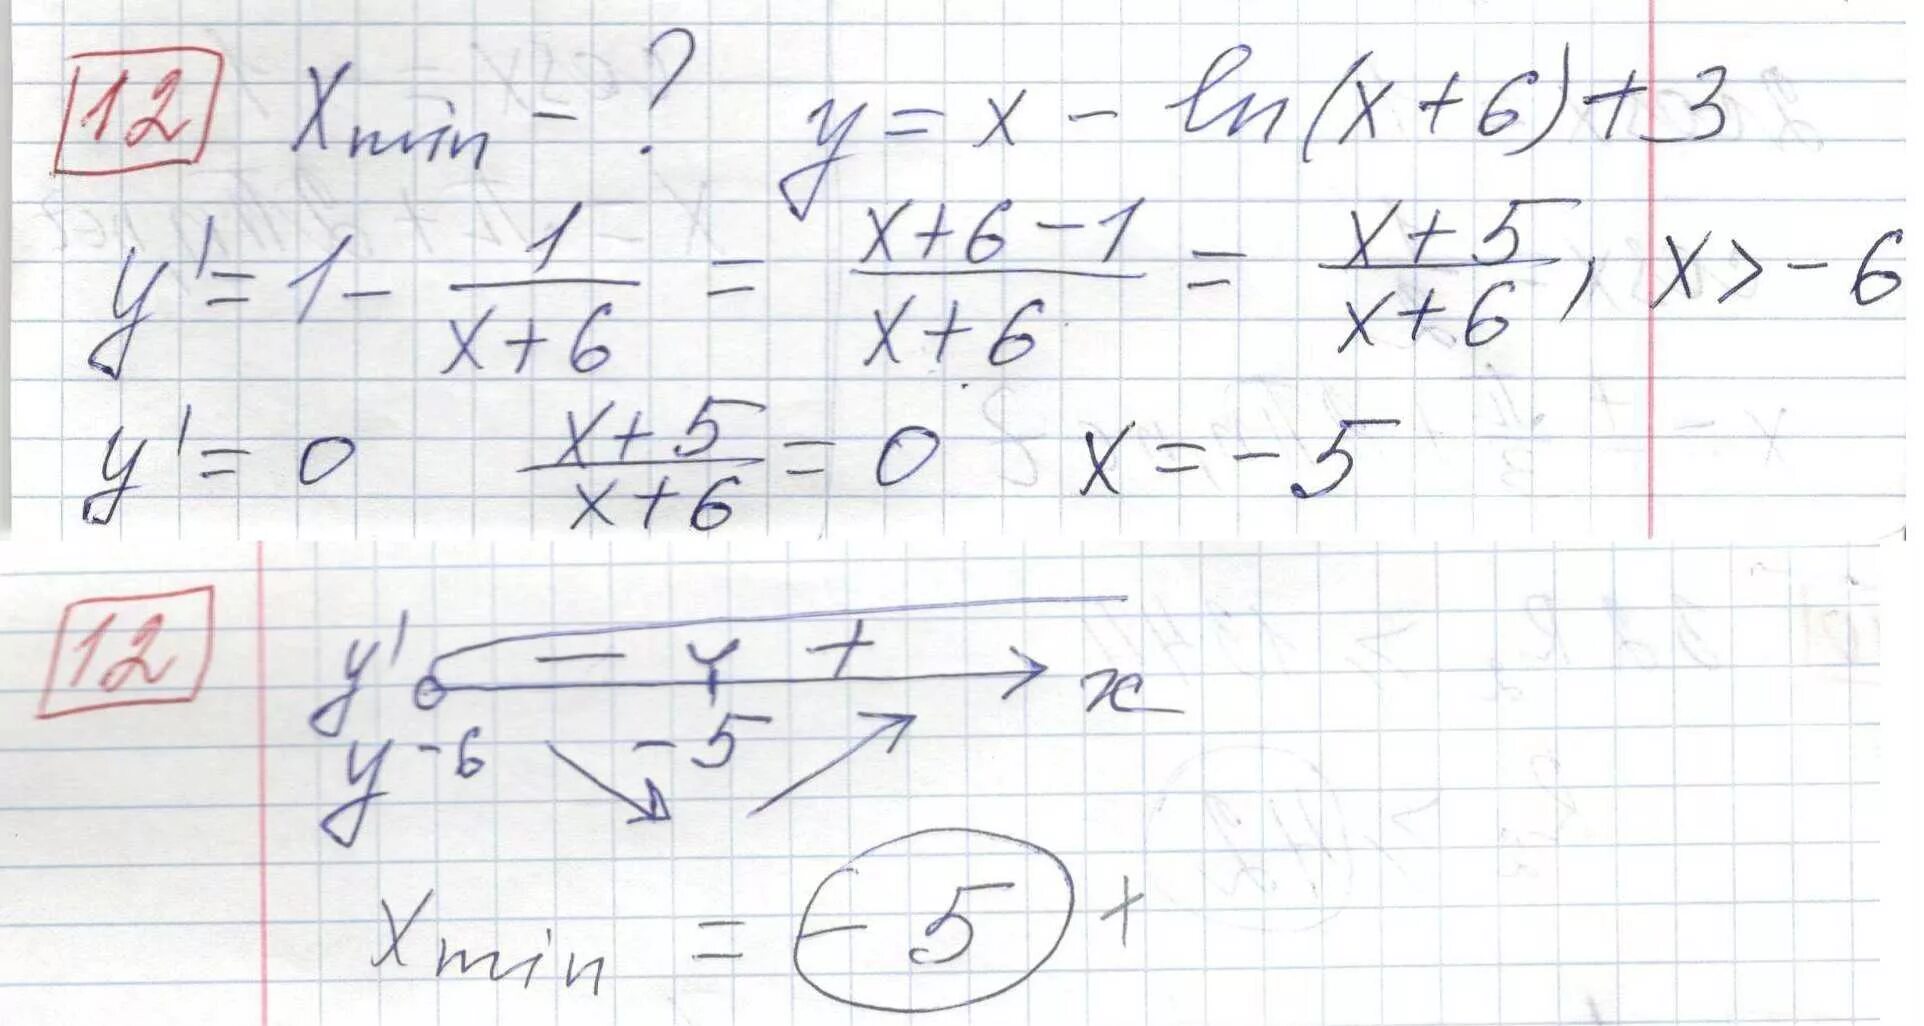 12 Xmin - ? y = x - ln(x+6)+3
y' = 1 - 1/(x+6) = (x+6-1)/(x+6) = (x+5)/(x+6), x > -6
y' = 0 (x+5)/(x+6) = 0 x = -5
12 y' − + x
y -6 -5
Xmin = -5 +